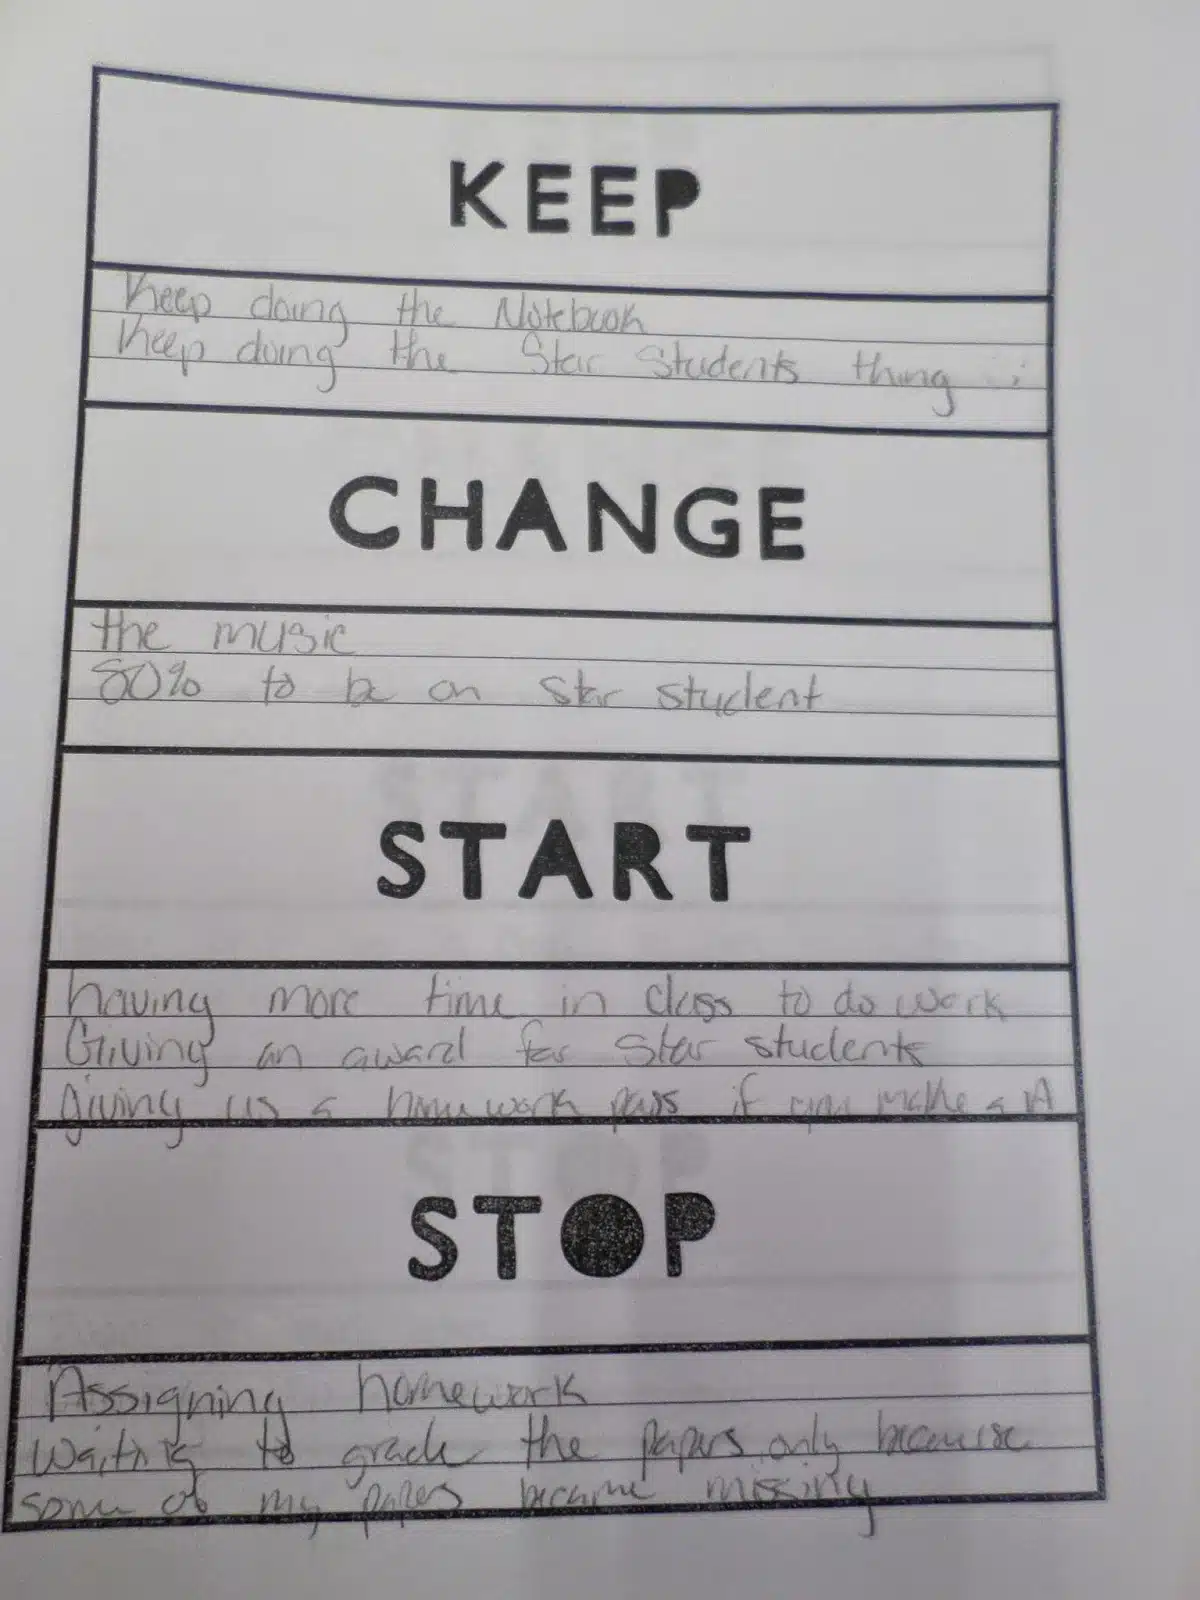 KEEP
Keep doing the Notebook
Keep doing the Star Students thing
CHANGE
the music
80% to be on Star student
START
having more time in class to do work
Giving an award for Star students
giving us a homework pass if you make a A
STOP
Assigning homework
Waiting to grade the papers only because
some of my papers became missing